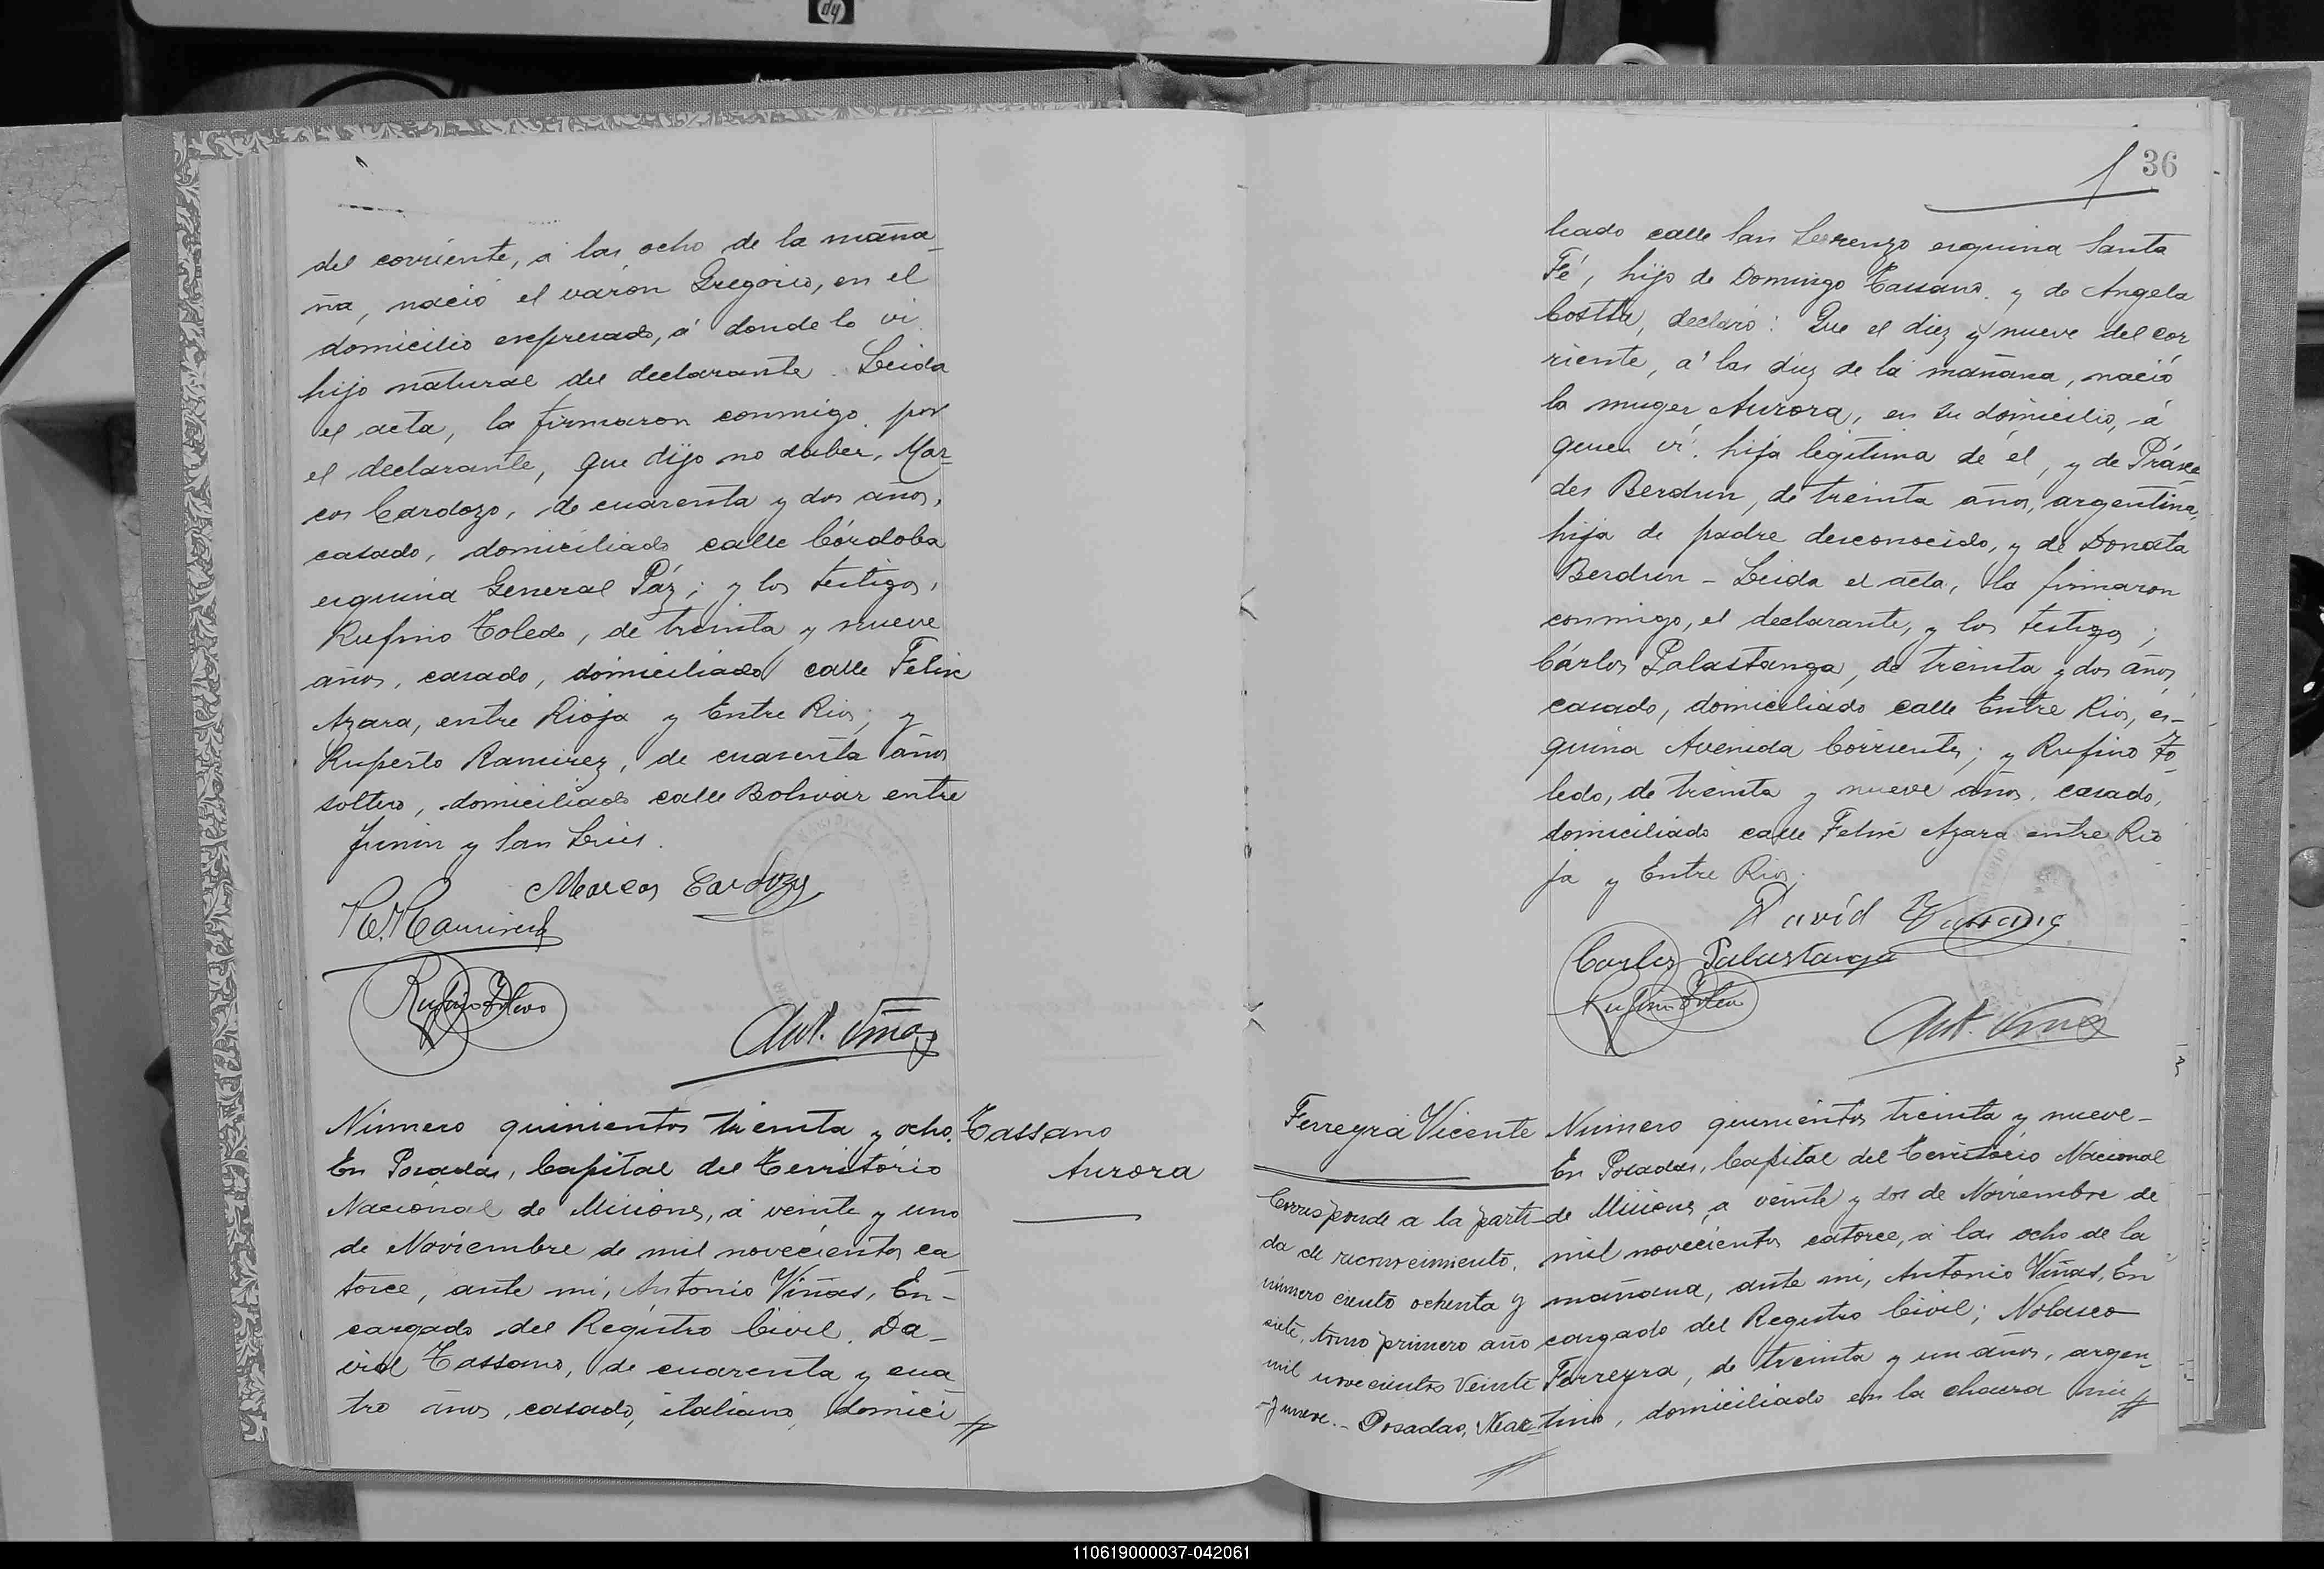 del corriente, á las ocho de la maña_
ña, nació el varón Gregorio, en el
domicilio expresado, á donde lo vi.
hijo natural del declarante. Leida
el acta, la firmaron conmigo. por
el declarante, que dijo no saber, Mar_
cos Cardozo, de cuarenta y dos años,
casado, domiciliado calle Córdoba
esquina General Páz; y los testigos,
Rufino Toledo, de treinta y nueve
años, casado, domiciliado calle Felix
Azara, entre Rioja y Entre Rios; y
Ruperto Ramirez, de cuarenta años
soltero, domiciliado calle Bolivar entre
Junin y San Luis.
Marcos Cardozo
R. Ramirez
Rufino Toledo
Ant. Viñas
Número quinientos treinta y ocho.
En Posadas, Capital del Territorio
Nacional de Misiones, á veinte y uno
de Noviembre de mil novecientos ca_
torce, ante mi, Antonio Viñas, En-
cargado del Registro Civil, Da_
vid Tassano, de cuarenta y cua_
tro años, casado, italiano, domici
Tassano
Aurora
36
liado calle San Lorenzo esquina Santa
Fé, hijo de Domingo Tassano y de Angela
Costta, declaró: Que el diez y nueve del cor
riente, á las diez de la mañana, nació
la muger Aurora, en su domicilio, á
quien ví. hija legítima de él, y de Práxe_
des Berdun, de treinta años, argentina,
hija de padre desconocido, y de Donata
Berdun - Leida el acta, la firmaron
conmigo, el declarante, y los testigos;
Cárlos Palastanga, de treinta y dos años,
casado, domiciliado calle Entre Rios, es-
quina Avenida Corrientes; y Rufino To_
ledo, de treinta y nueve años, casado,
domiciliado calle Felix Azara entre Rio
ja y Entre Rios.
David Tassano
Carlos Palastanga
Rufino Toledo
Ant. Viñas
Ferreyra Vicente
Corresponde a la parti-
da de reconocimiento,
número ciento ochenta y
siete, tomo primero año
mil novecientos veinte
y nueve.- Posadas, Mar-
Número quinientos treinta y nueve-
En Posadas, Capital del Territorio Nacional
de Misiones, a veinte y dos de Noviembre de
mil novecientos catorce, á las ocho de la
mañana, ante mi, Antonio Viñas, En
cargado del Registro Civil; Nolasco
Ferreyra, de treinta y un años, argen_
tino, domiciliado en la chacra
110619000037-042061